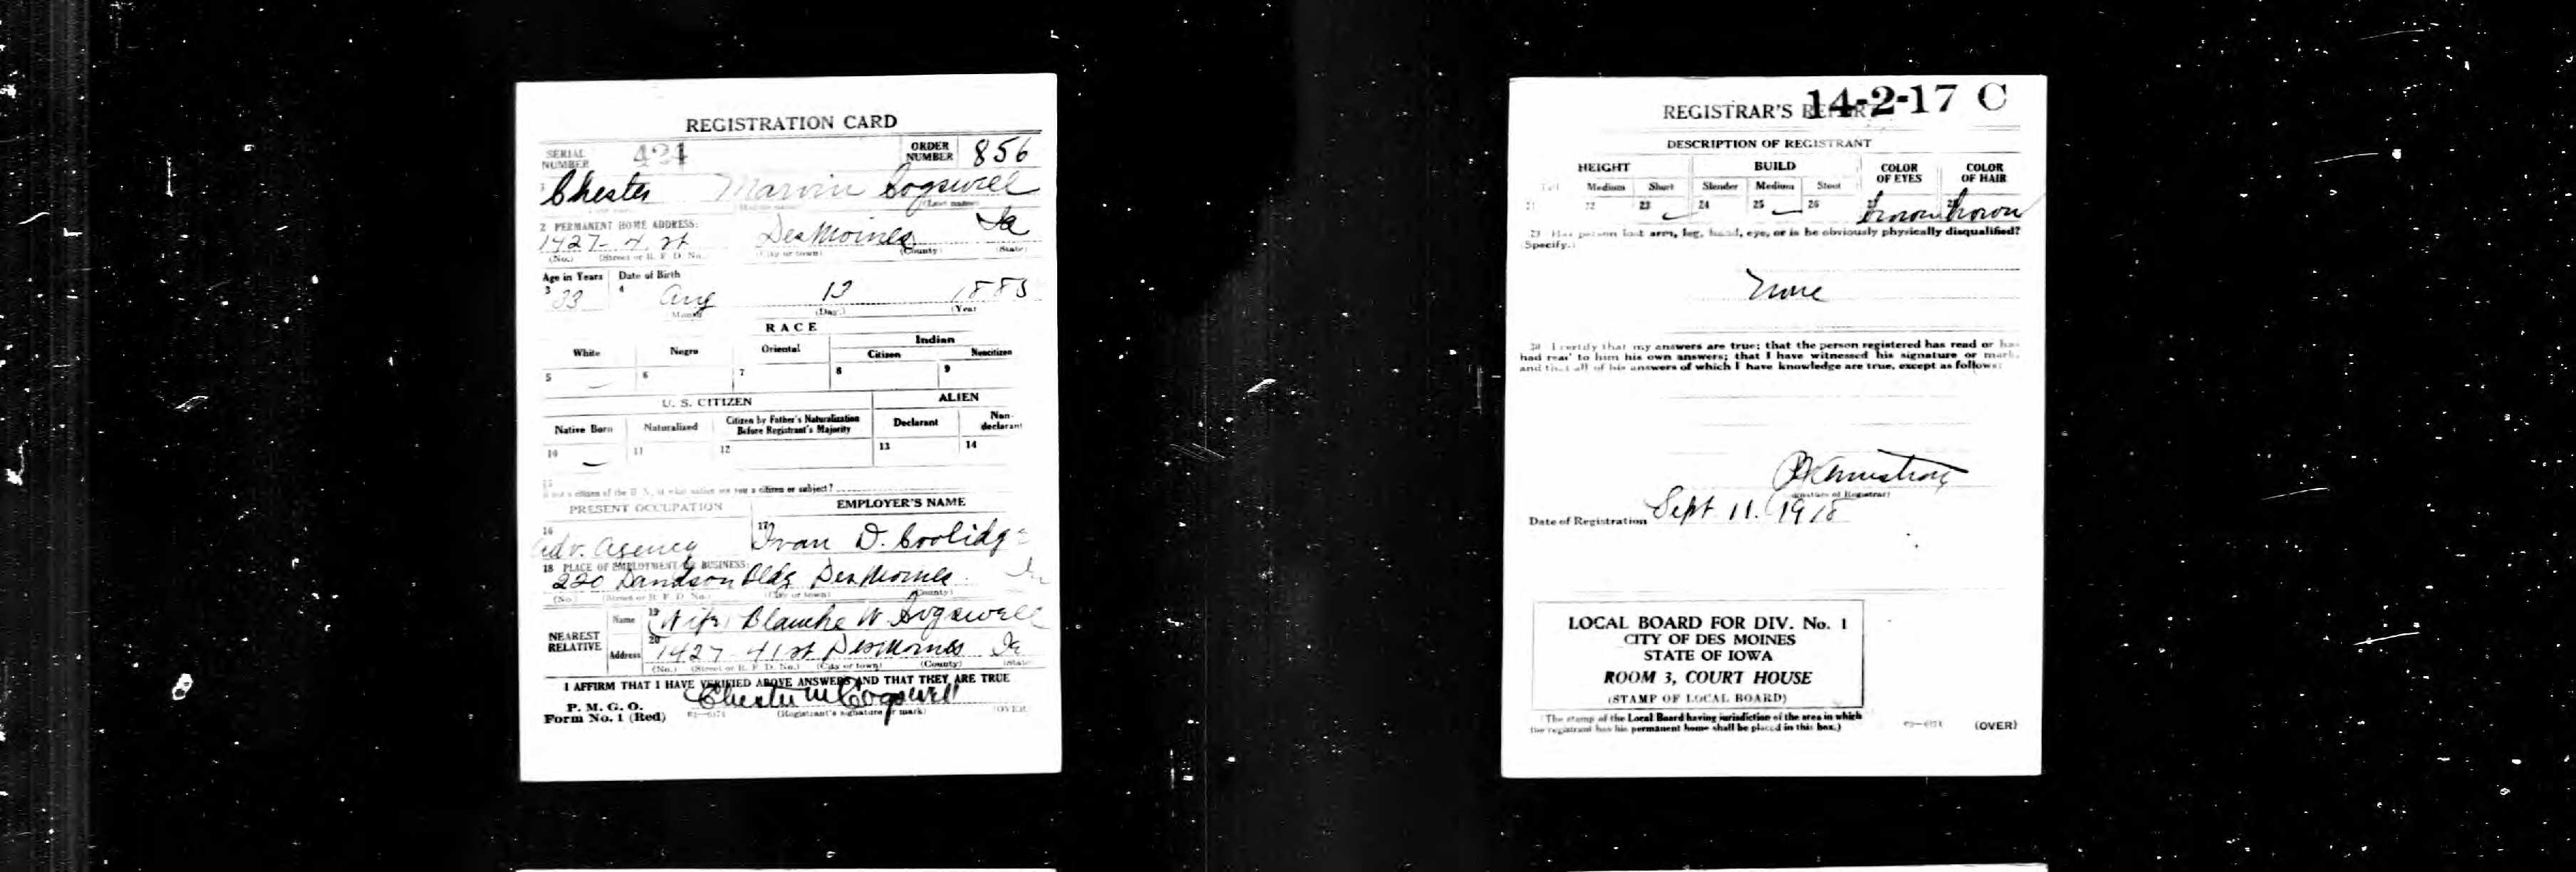 REGISTRATION CARD
SERIAL NUMBER 424 ORDER NUMBER 856
1 Chester Marvin Cogswell
(Last name)
2 PERMANENT HOME ADDRESS:
1427- 4 st Des Moines Ia
(No.) (Street or R. F. D. No.) (City or town) (County) (State)
Age in Years Date of Birth
3 33 4 Aug 13 1885
Month (Day.) (Year
RACE
White Negro Oriental Indian
Citizen Noncitizen
5 6 7 8 9
U. S. CITIZEN ALIEN
Native Born Naturalized Citizen by Father's Naturalization Before Registrant's Majority Declarant Non-declarant
10 11 12 13 14
15
If not a citizen of the U. S., of what nation are you a citizen or subject?
PRESENT OCCUPATION EMPLOYER'S NAME
16 Adv. Agency 17 Ivan D. Coolidge
18 PLACE OF EMPLOYMENT OR BUSINESS:
220 Davidson Bldg Des Moines Ia
(No.) (Street or R. F. D. No.) (City or town) (County)
NEAREST RELATIVE
Name 19 (Wife) Blanche W. Cogswell
Address 20 1427 41 st Des Moines Ia
(No.) (Street or R. F. D. No.) (City or town) (County) (State)
I AFFIRM THAT I HAVE VERIFIED ABOVE ANSWERS AND THAT THEY ARE TRUE
P. M. G. O.
Form No. 1 (Red) 03—6171 Chester M Cogswell
(Registrant's signature or mark) (OVER)
REGISTRAR'S REPORT 14-2-17 C
DESCRIPTION OF REGISTRANT
HEIGHT BUILD COLOR OF EYES COLOR OF HAIR
Tall Medium Short Slender Medium Stout
21 22 23 24 25 26 27 brown 28 brown
29 Has person lost arm, leg, hand, eye, or is he obviously physically disqualified?
Specify.)
None
30 I certify that my answers are true; that the person registered has read or has
had read to him his own answers; that I have witnessed his signature or mark,
and that all of his answers of which I have knowledge are true, except as follows:
Armstrong
(Signature of Registrar)
Date of Registration Sept 11. 1918
LOCAL BOARD FOR DIV. No. 1
CITY OF DES MOINES
STATE OF IOWA
ROOM 3, COURT HOUSE
(STAMP OF LOCAL BOARD)
(The stamp of the Local Board having jurisdiction of the area in which
the registrant has his permanent home shall be placed in this box.)
03—6171 (OVER)